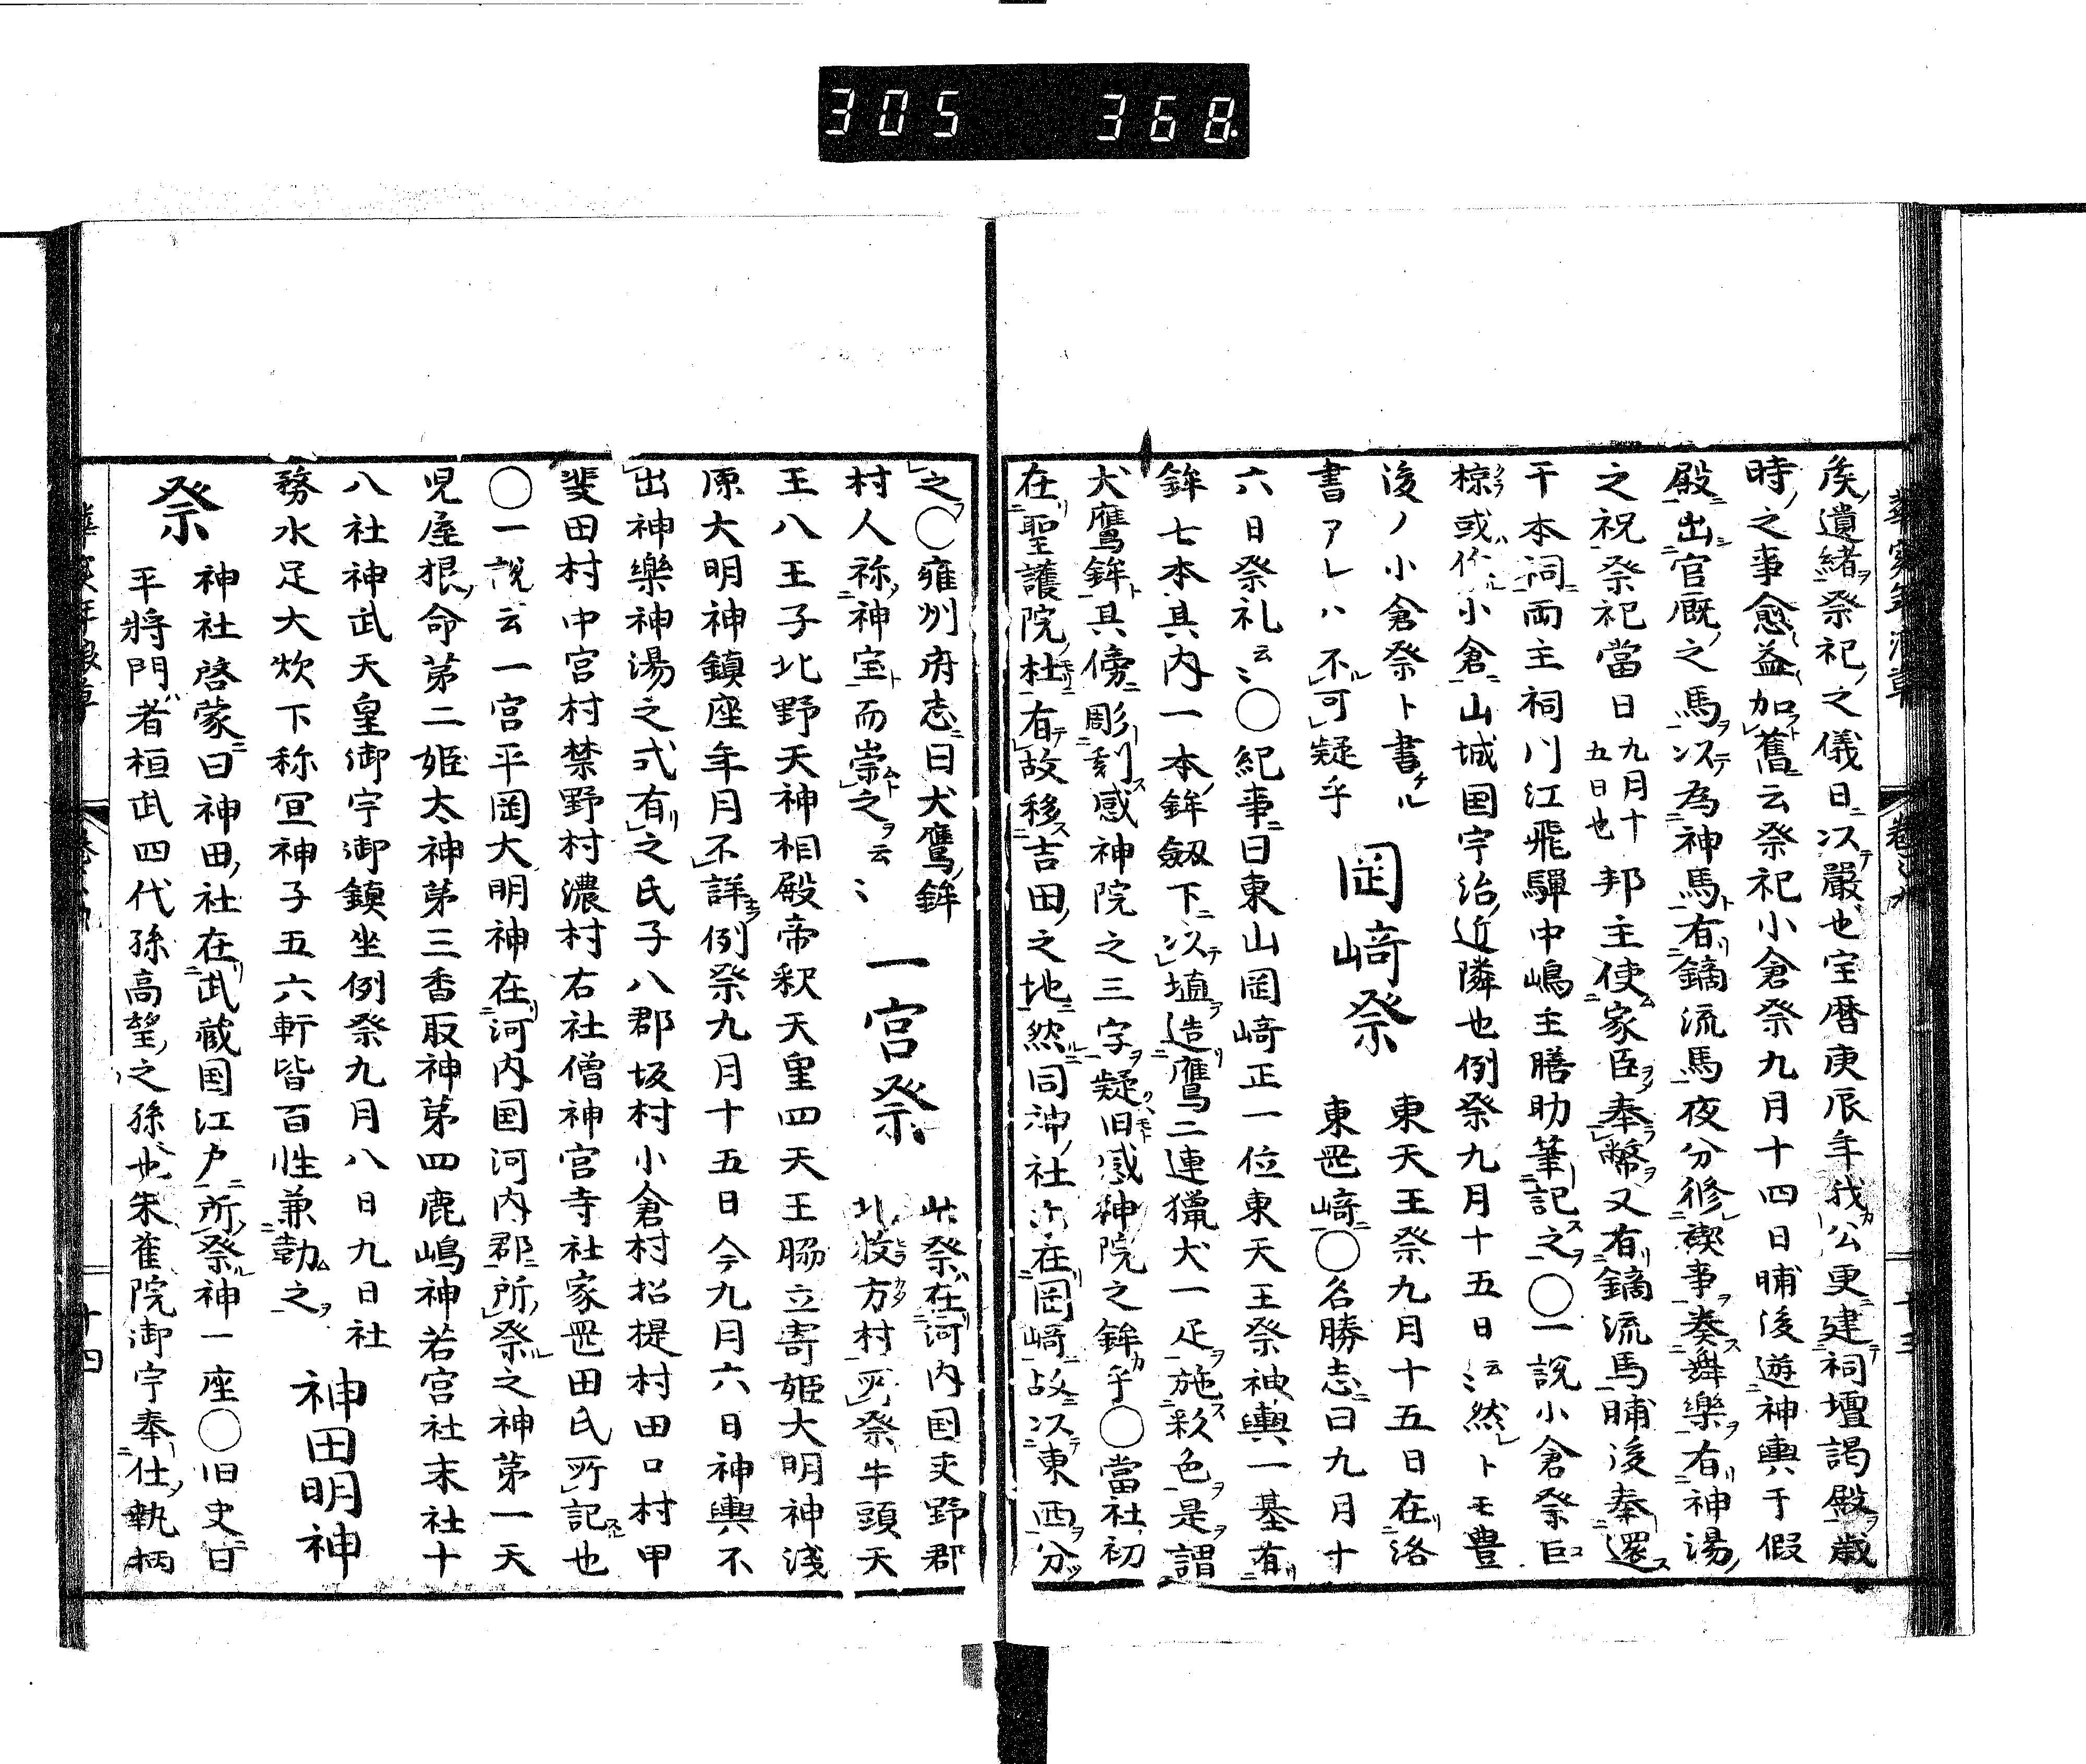 305 368.
矦遺緒ヲ祭祀ノ之儀日ニ以テ嚴也宝暦庚辰年我カ公更ニ建テ祠壇謁殿ヲ歳
時ノ之事愈益加フト舊ニ云祭祀小倉祭九月十四日晡後遊神輿于假
殿ニ出官厩ノ之馬ヲ以テ為神馬ト有リ鏑流馬夜分修禊事ヲ奏ス舞樂ヲ有リ神湯ノ
之祝祭祀當日九月十五日也邦主使家臣ヲ奉幣ヲ又有リ鏑流馬晡後奉還ス
于本祠ニ両主祠川江飛騨中嶋主膳助筆記ス之ヲ〇一說小倉祭巨
椋或作小倉ニ山城国宇治ノ近隣也例祭九月十五日云〻然レトモ豊
後ノ小倉祭ト書ケル書アレハ不可疑乎
岡﨑祭
東天王祭九月十五日在洛東岡﨑ニ〇名勝志ニ曰九月十
六日祭礼云〻〇紀事ニ曰東山岡﨑正一位東天王祭神輿一基有リ
鉾七本其内一本ノ鉾劔下ニ以テ埴ヲ造リ鷹二連獵犬一疋ヲ施ス彩色ヲ是ヲ謂
犬鷹鉾ト其傍ニ彫刻ス感神院之三字ヲ疑旧感神院之鉾カ乎〇當社初
在リ聖護院ノ杜ニ有テ故移ス吉田ノ之地ニ然ルニ同神ノ社亦在リ岡﨑ニ故ニ以テ東西ヲ分ツ
之ヲ〇雍州府志ニ曰犬鷹ノ鉾
一宮祭
此祭ハ在リ河内国交野郡
北牧方村ニ所祭牛頭天
村人称ノ神宝ト而崇ムト之ヲ云〻
王八王子北野天神相殿帝釈天皇四天王脇立寄姫大明神淺
原大明神鎮座年月不詳ナラ例祭九月十五日今九月六日神輿不
出神樂神湯之式有リ之氏子八郡坂村小倉村招提村田口村甲
斐田村中宮村禁野村濃村右社僧神宮寺社家岡田氏所記ス也
〇一說云一宮平岡大明神在リ河内国河内郡ニ所ノ祭之神第一天
児屋根ノ命第二姫太神第三香取神第四鹿嶋神若宮社末社十
八社神武天皇御宇御鎮坐例祭九月八日九日社
務水足大炊下称宜神子五六軒皆百性兼勤ム之ヲ
神田明神
祭
神社啓蒙ニ曰神田ノ社在リ武蔵国江戸ニ所ノ祭神一座〇旧史ニ曰
平將門者桓武四代孫高望ノ之孫也朱雀院御宇奉仕ノ執柄
十四